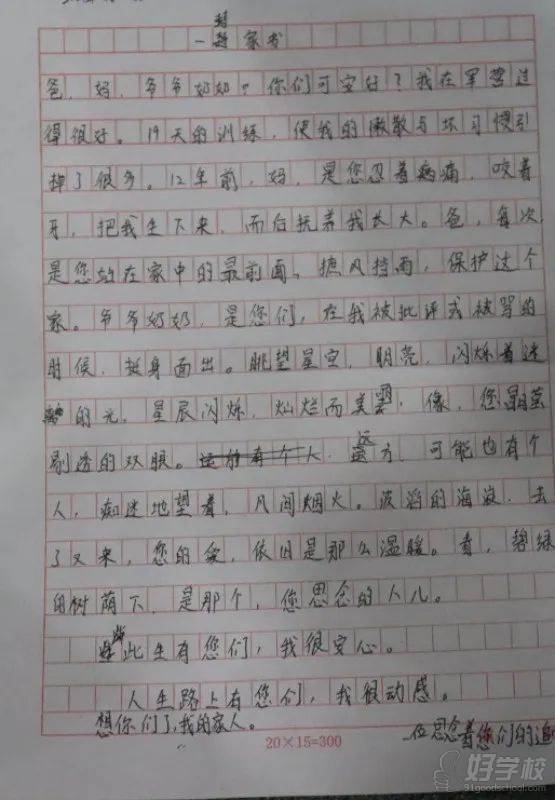 一封家书
爸，妈，爷爷奶奶，你们可安好？我在军营过
得很好。19天的训练，使我的懒散与坏习惯引
掉了很多。12年前，妈，是您忍着病痛，咬着
牙，把我生下来，而后抚养我长大。爸，每次
是您站在家中的最前面，摭风挡雨，保护这个
家。爷爷奶奶，是您们，在我被批评或被骂的
时候，挺身面出。眺望星空，明亮，闪烁着迷
的光，星辰闪烁，灿烂而美，像，您晶莹
剔透的双眼。远方，可能也有个
人，痴迷地望着，凡间烟火。波滔的海浪，去
了又来，您的爱，依旧是那么温暖。看，碧绿
的树荫下，是那个，您思念的人儿。
此生有您们，我很安心。
人生路上有您们，我很动感。
想你们了，我的家人。
20×15=300
一位思念着您们的
好学校
91goodschool.com